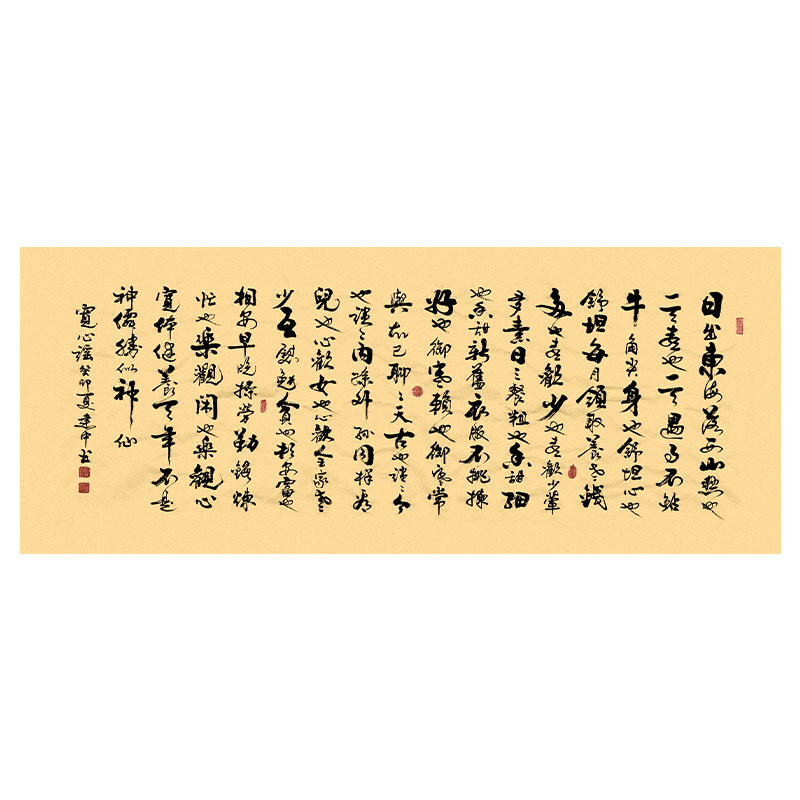 日出東海落西山愁也
一天喜也一天遇事不鉆
牛角尖身也舒坦心也
舒坦每月領取養老錢
多也喜歡少也喜歡少葷
多素日三餐粗也香甜細
也香甜新舊衣服不挑揀
好也御寒賴也御寒常
與知己聊聊天古也談談今
也談談內孫外孫同樣看
兒也心歡女也心歡全家老
少互慰勉貧也相安富也
相安早晚操勞勤鍛煉
忙也樂觀閑也樂觀心
寬體健養天年不是
神僊勝似神仙
寬心謠癸卯夏建中書